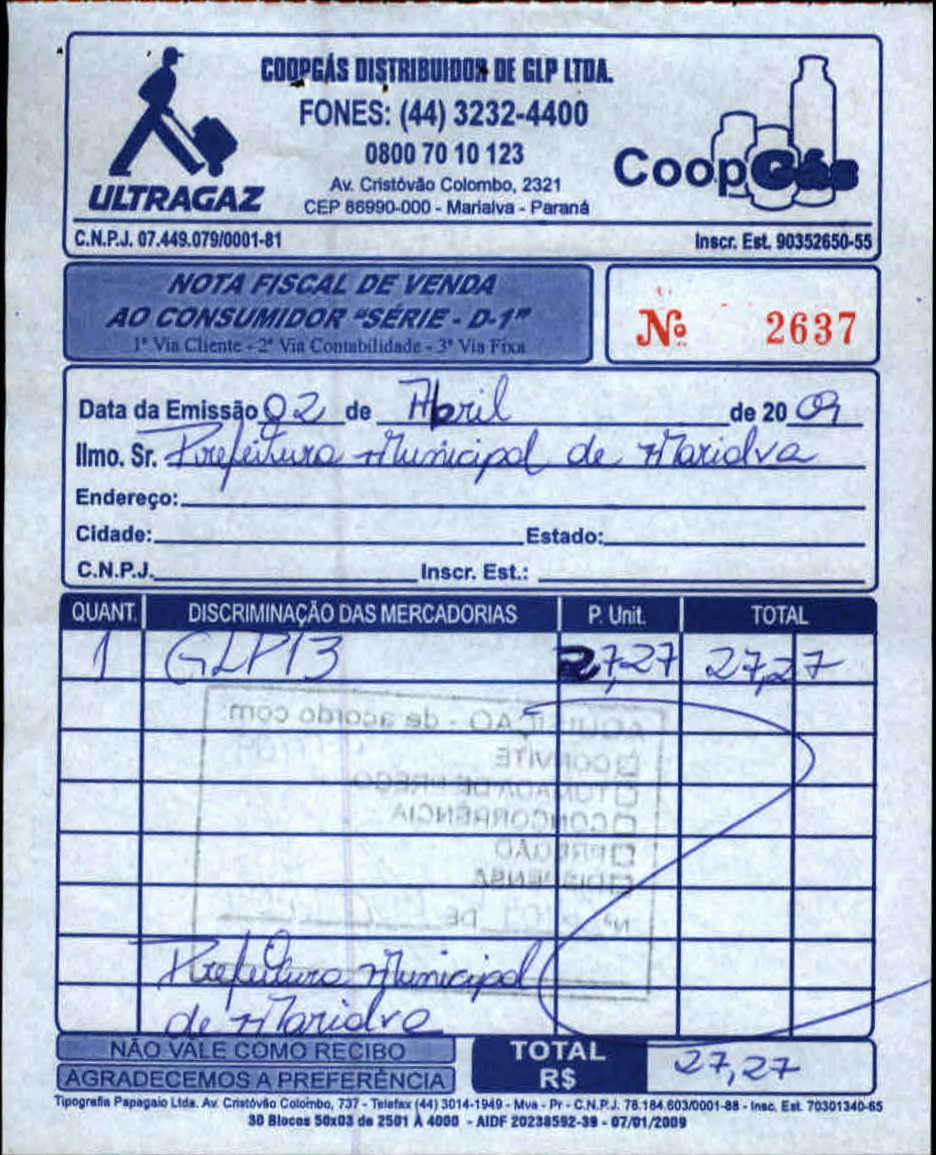 COOPGÁS DISTRIBUIDOR DE GLP LTDA.
FONES: (44) 3232-4400
0800 70 10 123
Av. Cristóvão Colombo, 2321
CEP 86990-000 - Marialva - Paraná
ULTRAGAZ
CoopGás
C.N.P.J. 07.449.079/0001-81
Inscr. Est. 90352650-55
NOTA FISCAL DE VENDA
AO CONSUMIDOR "SÉRIE - D-1"
1ª Via Cliente - 2ª Via Contabilidade - 3ª Via Fixa
Nº 2637
Data da Emissão 02 de Abril de 2009
Ilmo. Sr. Prefeitura Municipal de Marialva
Endereço:
Cidade: Estado:
C.N.P.J. Inscr. Est.:
QUANT. DISCRIMINAÇÃO DAS MERCADORIAS P. Unit. TOTAL
1 GLP13 27,27 27,27
AQUISIÇÃO - de acordo com:
CONVITE
TOMADA DE PREÇO
CONCORRÊNCIA
PREGÃO
DISPENSA
Nº DE
Prefeitura Municipal
de Marialva
NÃO VALE COMO RECIBO
AGRADECEMOS A PREFERÊNCIA
TOTAL
R$ 27,27
Tipografia Papagaio Ltda. Av. Cristóvão Colombo, 737 - Telefax (44) 3014-1949 - Mva - Pr - C.N.P.J. 78.184.603/0001-88 - Insc. Est. 70301340-65
30 Blocos 50x03 de 2501 À 4000 - AIDF 20238592-39 - 07/01/2009